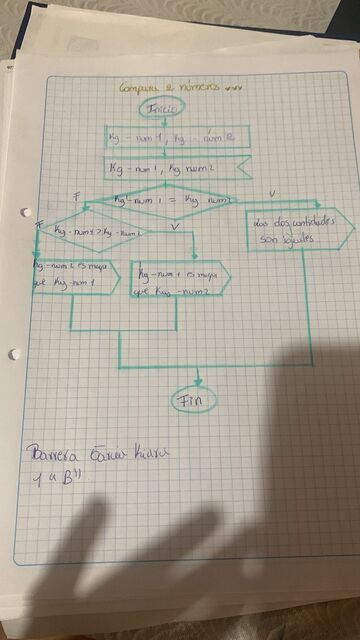 Compara 2 números
Inicio
Kg-num 1, Kg-num 2
Kg-num 1, Kg num 2
F
Kg-num 1 = Kg num 2
V
F
Kg-num 1 > Kg-num 2
V
las dos cantidades
son iguales
Kg-num 2 es mayor
que Kg-num 1
Kg-num 1 es mayor
que Kg-num 2
Fin
Barrera
1 "B"